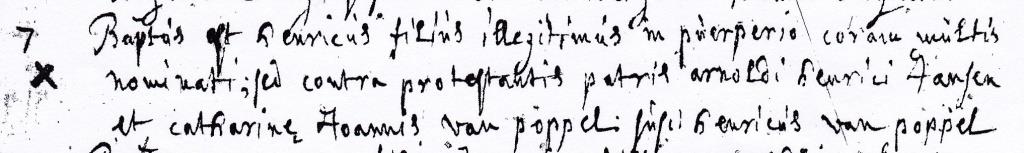 7 Baptûs est henricûs filiûs illegitimûs in pûerperio coram mûltis
X nominati; sed contra protestantis patris arnoldi henrici Jansen
et catharinę Joannis van poppel: sûsc: henricûs van poppel